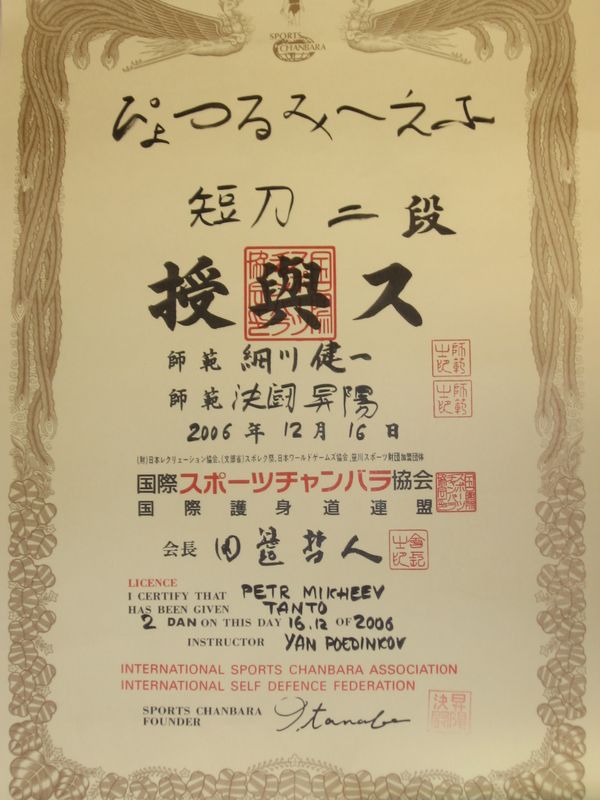 SPORTS
CHANBARA
ぴょつるみへえふ
短刀 二段
授與ス
師範 細川健一
師範 決闘昇陽
2006年12月16日
(財)日本レクリェーション協会、(文部省)スポレク祭、日本ワールドゲームズ協会、笹川スポーツ財団加盟団体
国際スポーツチャンバラ協会
国際護身道連盟
会長 田邉哲人
LICENCE
I CERTIFY THAT PETR MIKHEEV
HAS BEEN GIVEN TANTO
2 DAN ON THIS DAY 16.12 OF 2006
INSTRUCTOR YAN POEDINKOV
INTERNATIONAL SPORTS CHANBARA ASSOCIATION
INTERNATIONAL SELF DEFENCE FEDERATION
SPORTS CHANBARA
FOUNDER T. Tanabe